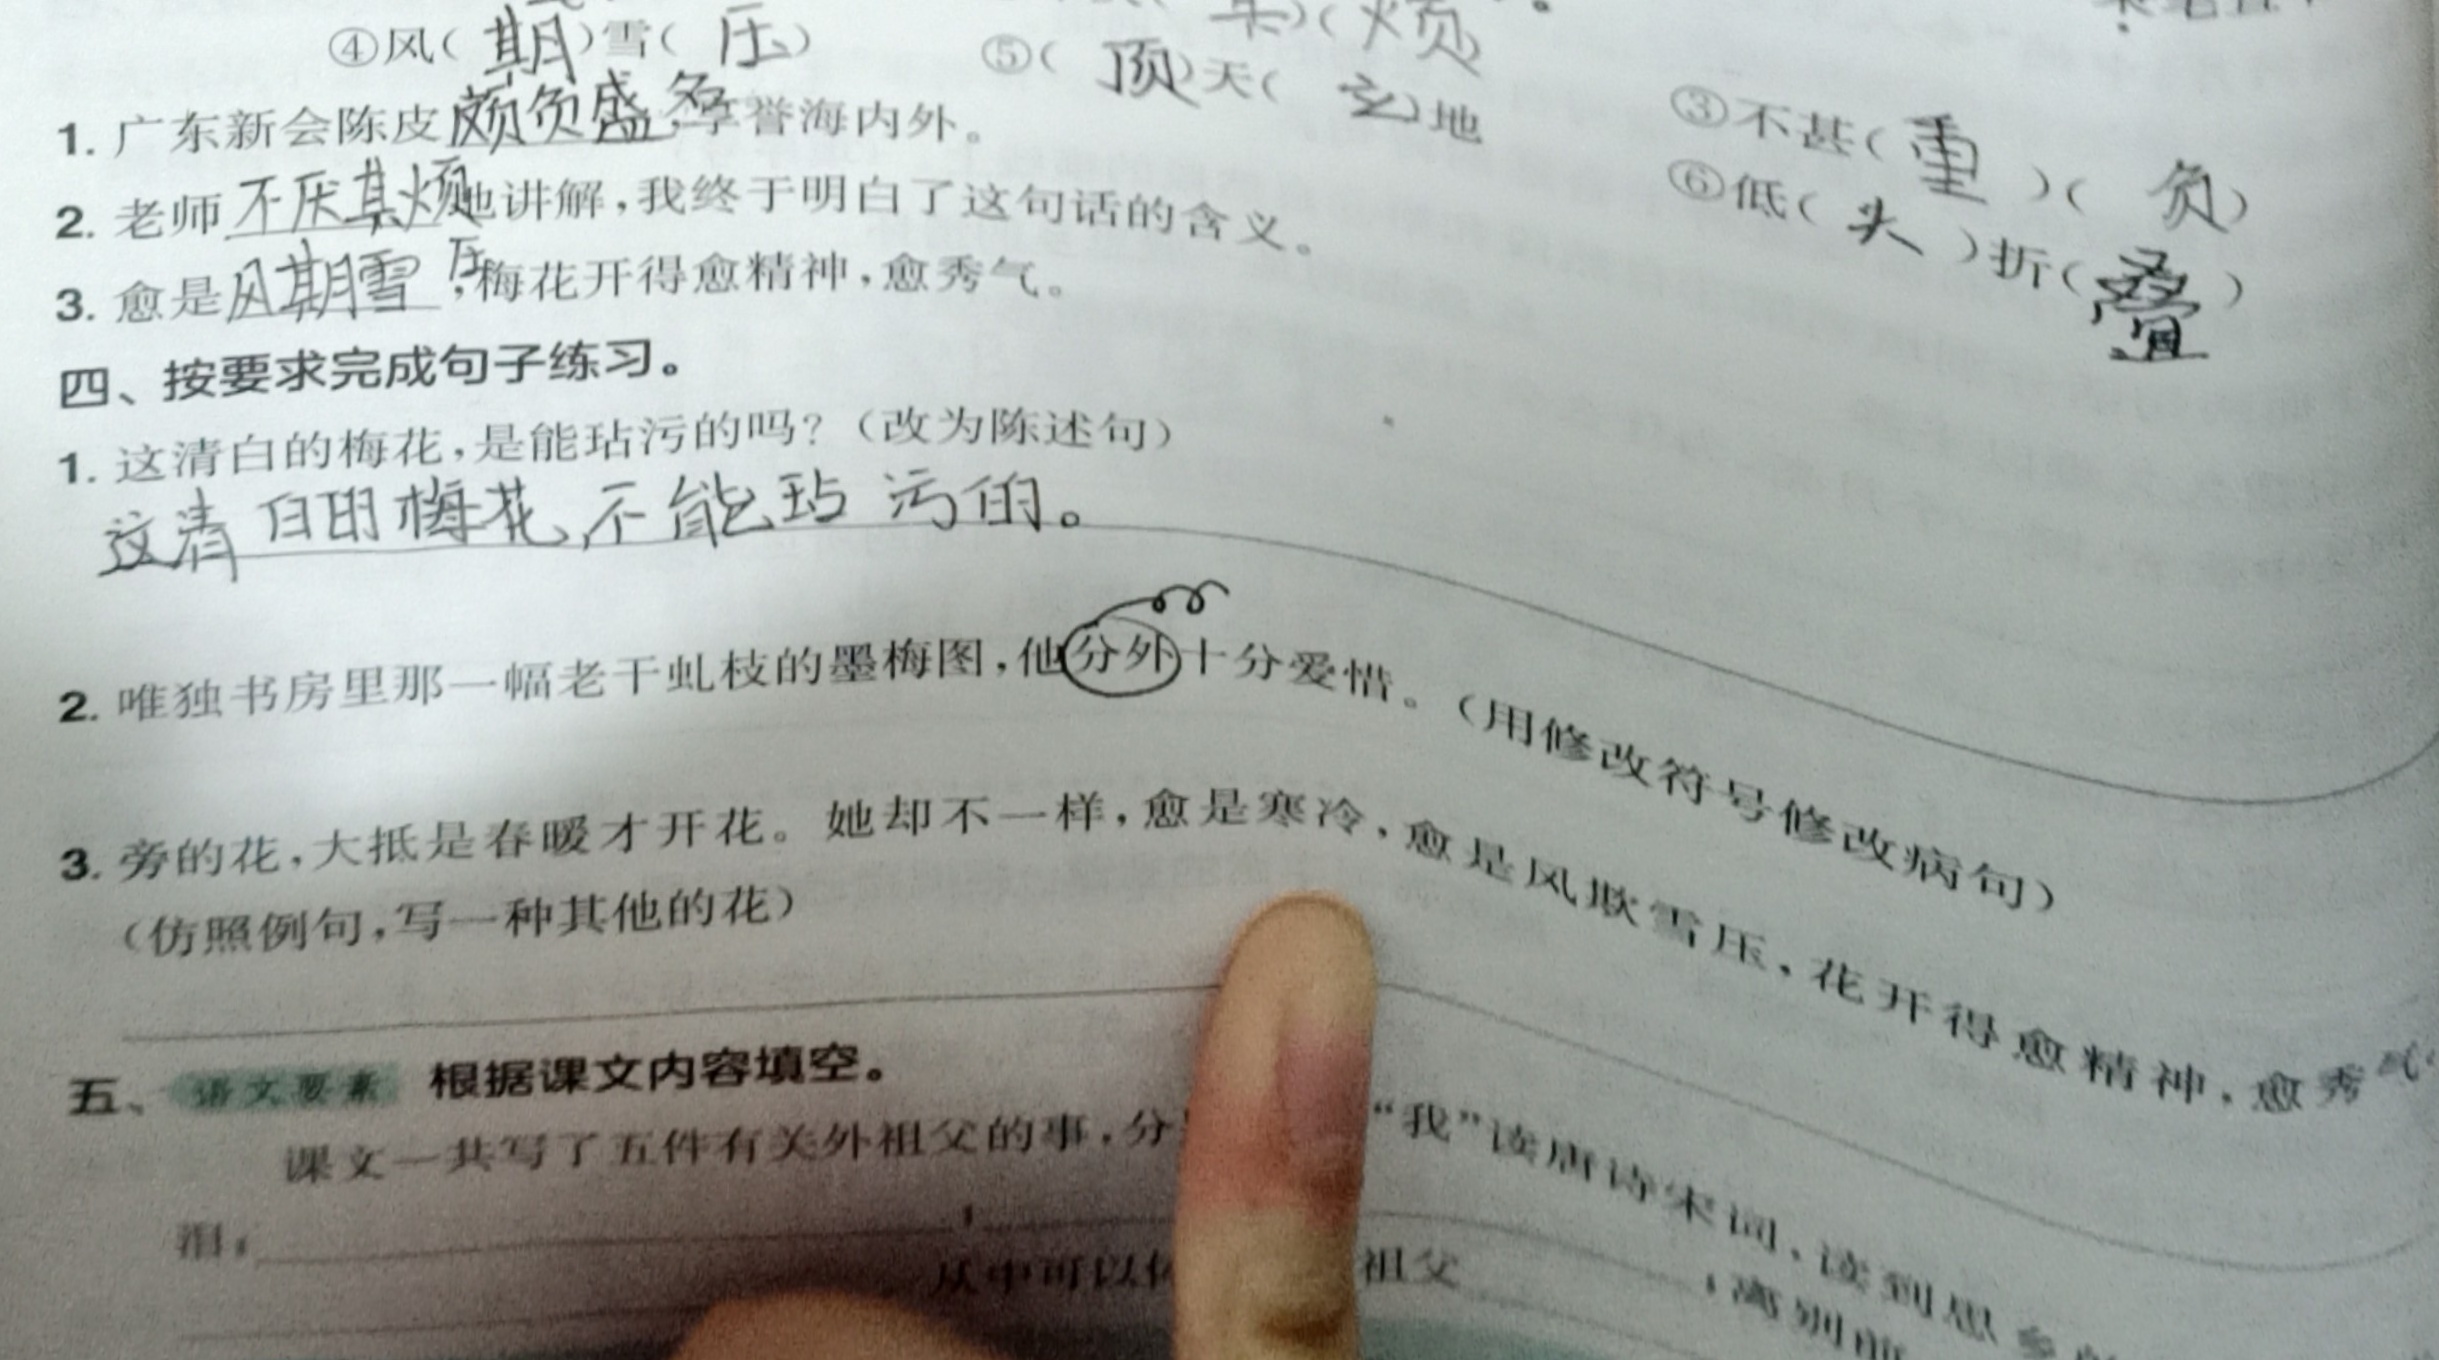 ④风(期)雪(压)
⑤(顶)天(立)地
③不甚(重)(负)
⑥低(头)折(叠)
1. 广东新会陈皮颇负盛名,享誉海内外。
2. 老师不厌其烦地讲解,我终于明白了这句话的含义。
3. 愈是风期雪压,梅花开得愈精神,愈秀气。
四、按要求完成句子练习。
1. 这清白的梅花,是能玷污的吗?(改为陈述句)
这清白的梅花,不能玷污的。
2. 唯独书房里那一幅老干虬枝的墨梅图,他分外十分爱惜。(用修改符号修改病句)
3. 旁的花,大抵是春暖才开花。她却不一样,愈是寒冷,愈是风欺雪压,花开得愈精神,愈秀气。
(仿照例句,写一种其他的花)
五、语文要素 根据课文内容填空。
课文一共写了五件有关外祖父的事,分 “我”读唐诗宋词,读到思乡
泪;
,
;离别前
从中可以 祖父